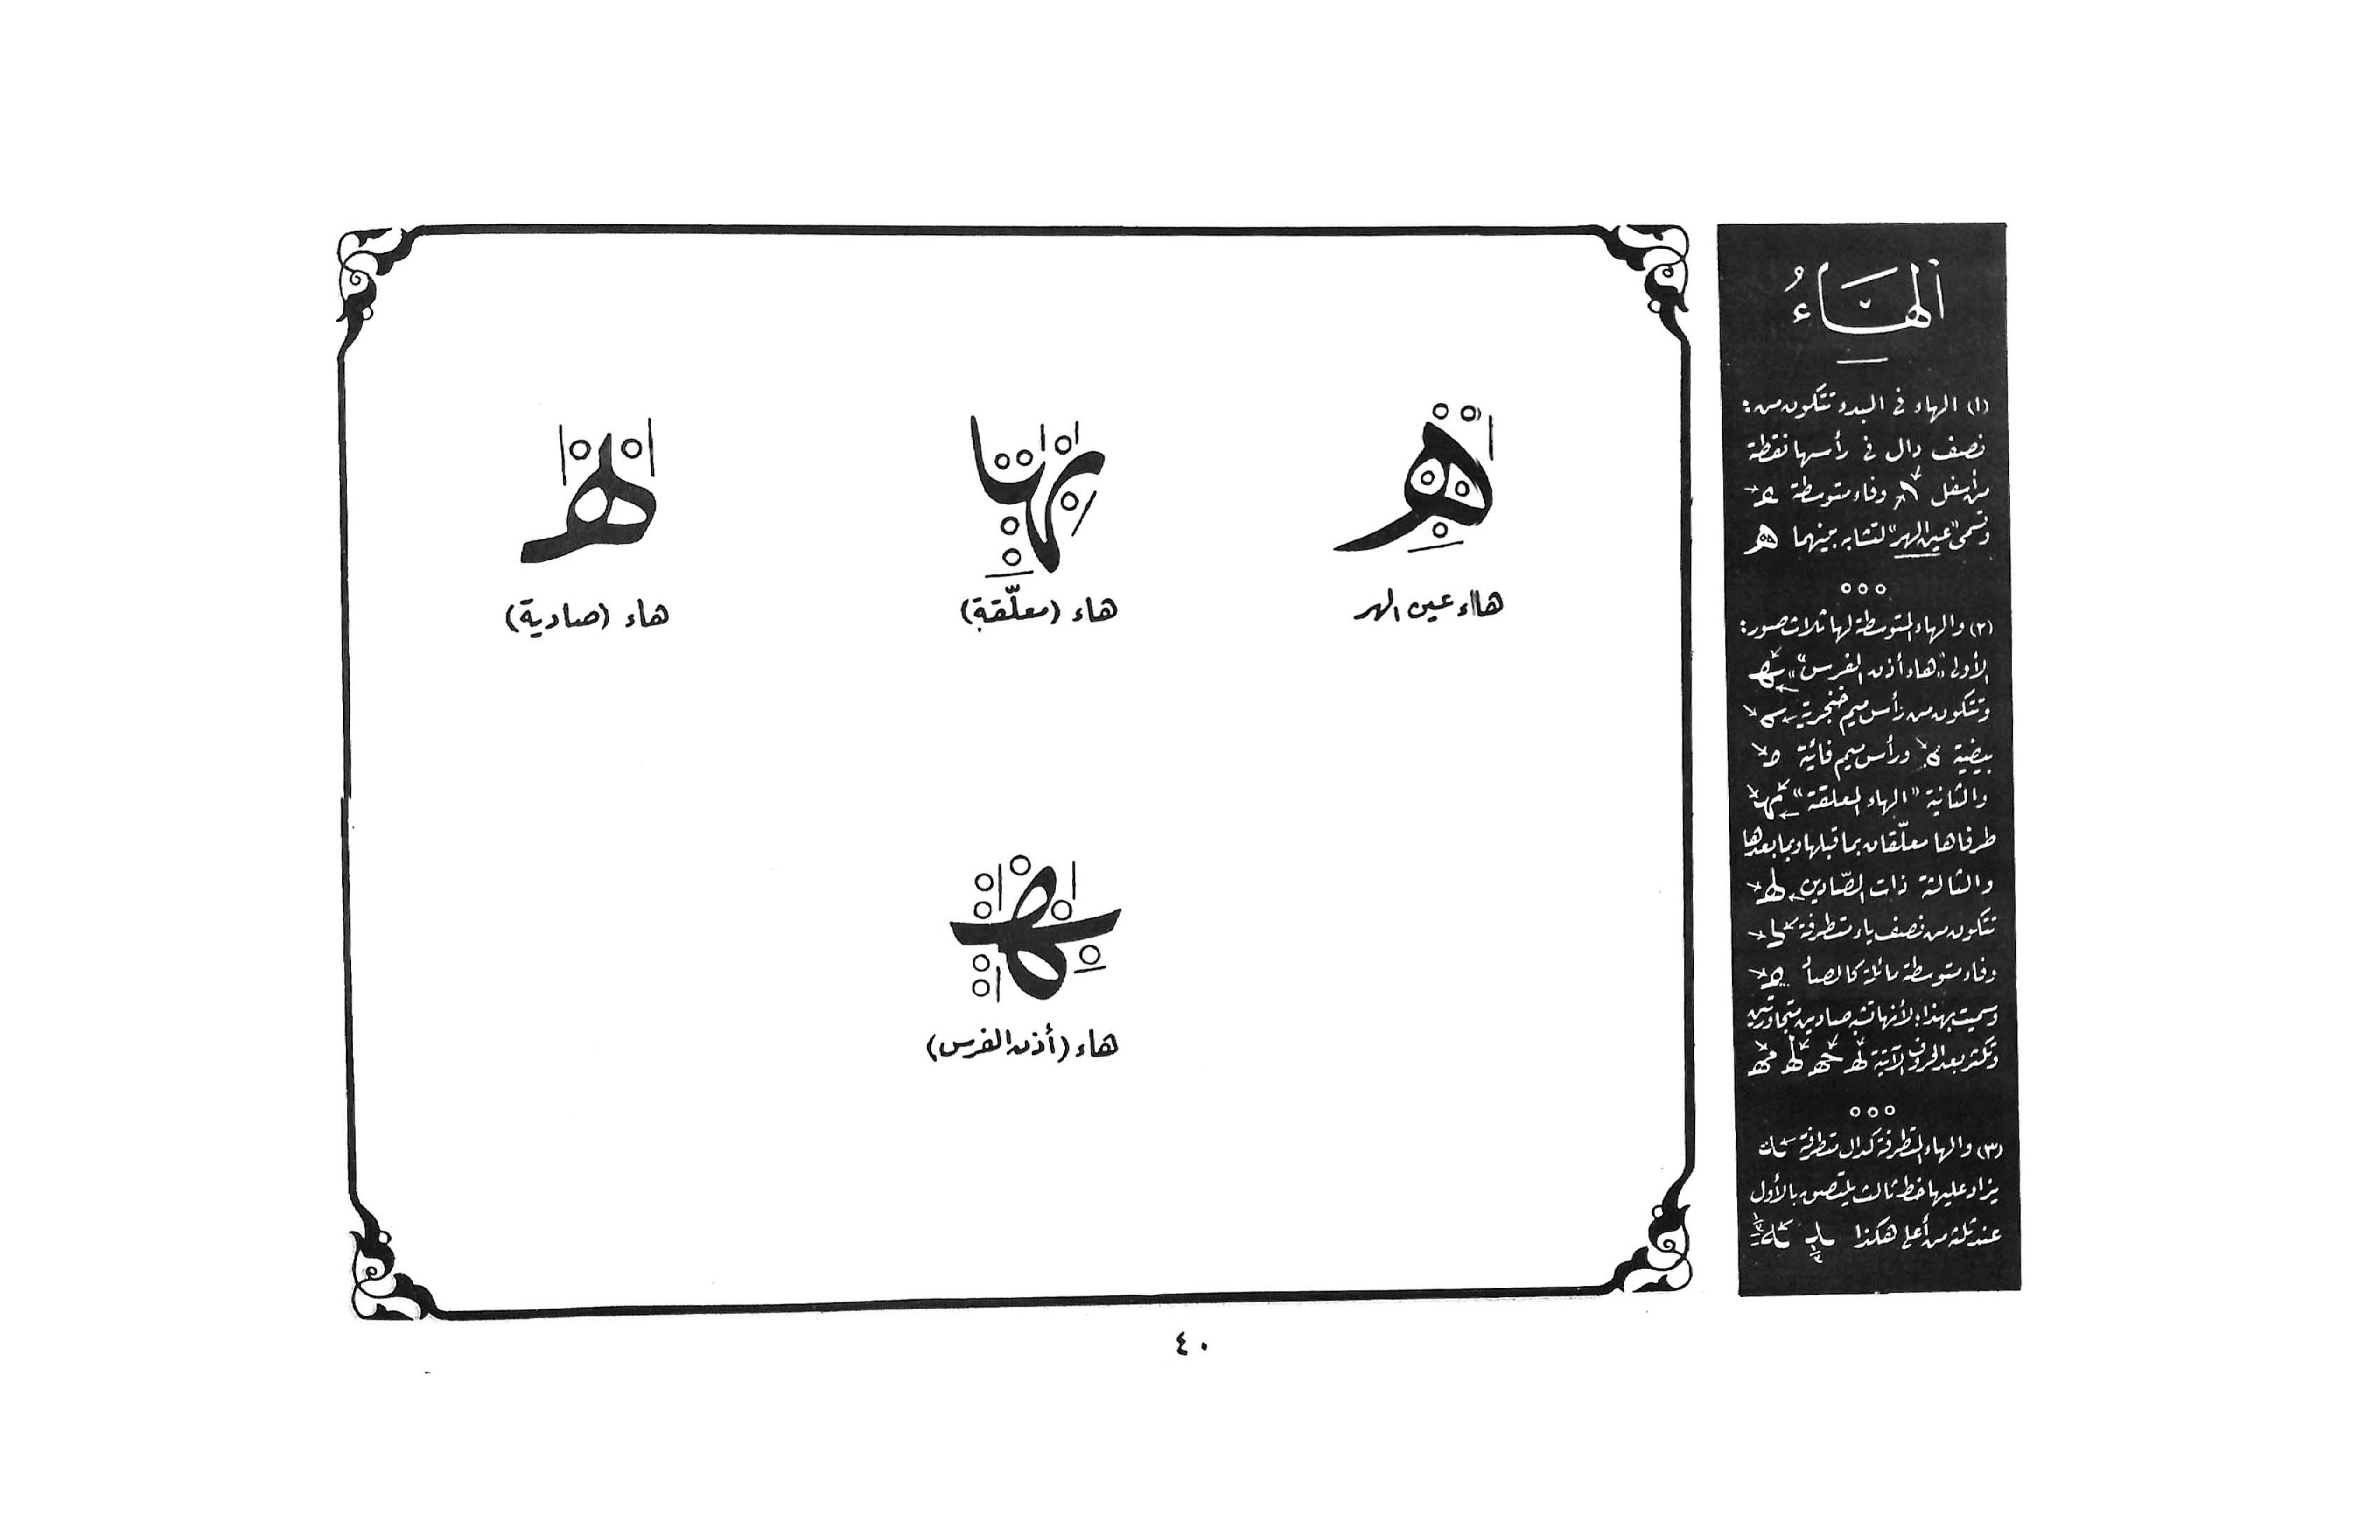 الهاء
(١) الهاء في البدء تتكون من:
نصف دال في رأسها نقطة
من أسفل وفاء متوسطة
وتسمى "عين الهر" لتشابه بينهما ه
ه ه ه
(٢) والهاء المتوسطة لها ثلاث صور:
الأولى "هاء أذن الفرس" ـهـ
وتتكون من رأس ميم خنجرية
بيضية ورأس ميم فائية
والثانية "الهاء المعلقة" ـهـ
طرفاها معلّقان بما قبلها وبما بعدها
والثالثة ذات الصّادين ـهـ
تتكون من نصف ياء متطرفة
وفاء متوسطة مائلة كالصاد
وسميت بهذا؛ لأنها تشبه صادين متجاورتين
وتكثر بعد الحروف الآتية
ه ه ه
(٣) والهاء المتطرفة كدال متطرفة
يزاد عليها خط ثالث يلتصق بالأول
عند ثلثه من أعلى هكذا
ه
هااء عين الهر
بها
هاء (معلّقة)
ه
هاء (صادية)
ـهـ
هاء (أذن الفرس)
٤٠